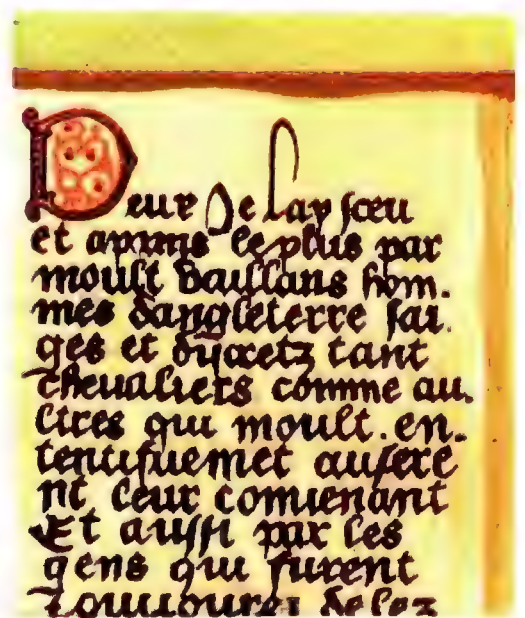 Deux de lay sceu
et aprins le plus par
moult vaillans hom.
mes dangleterre sai.
ges et discretz tant
chevaliers comme au.
ltres qui moult. en.
tentifuemet
nt ceux
Et aussi par les
gens qui furent
delez